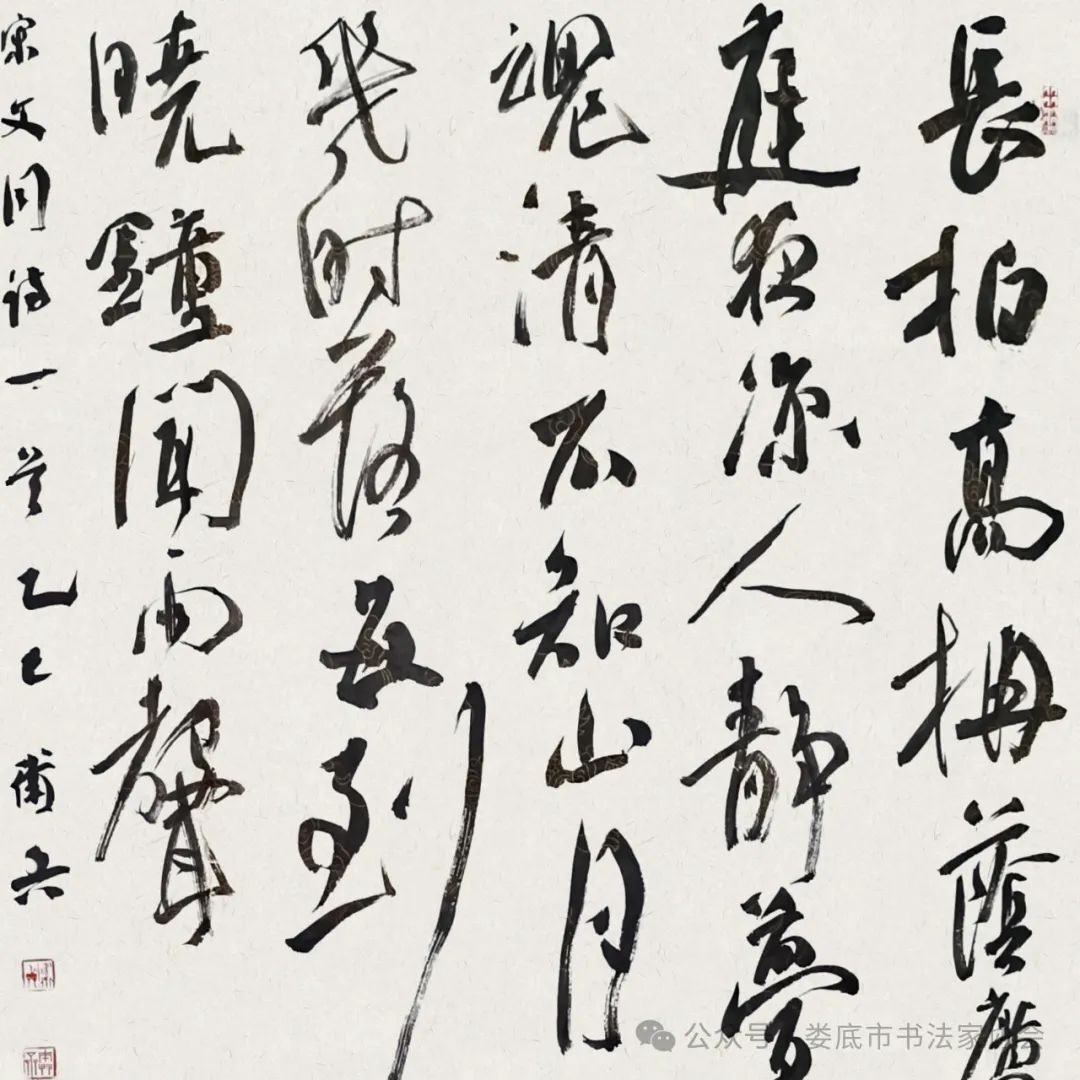 長柏高枏蔭廣
庭夜凉人靜夢
魂清不知山月
幾時落每到
曉鐘聞雨聲
宋文同詩一首乙巳
公众号 · 娄底市书法家协会